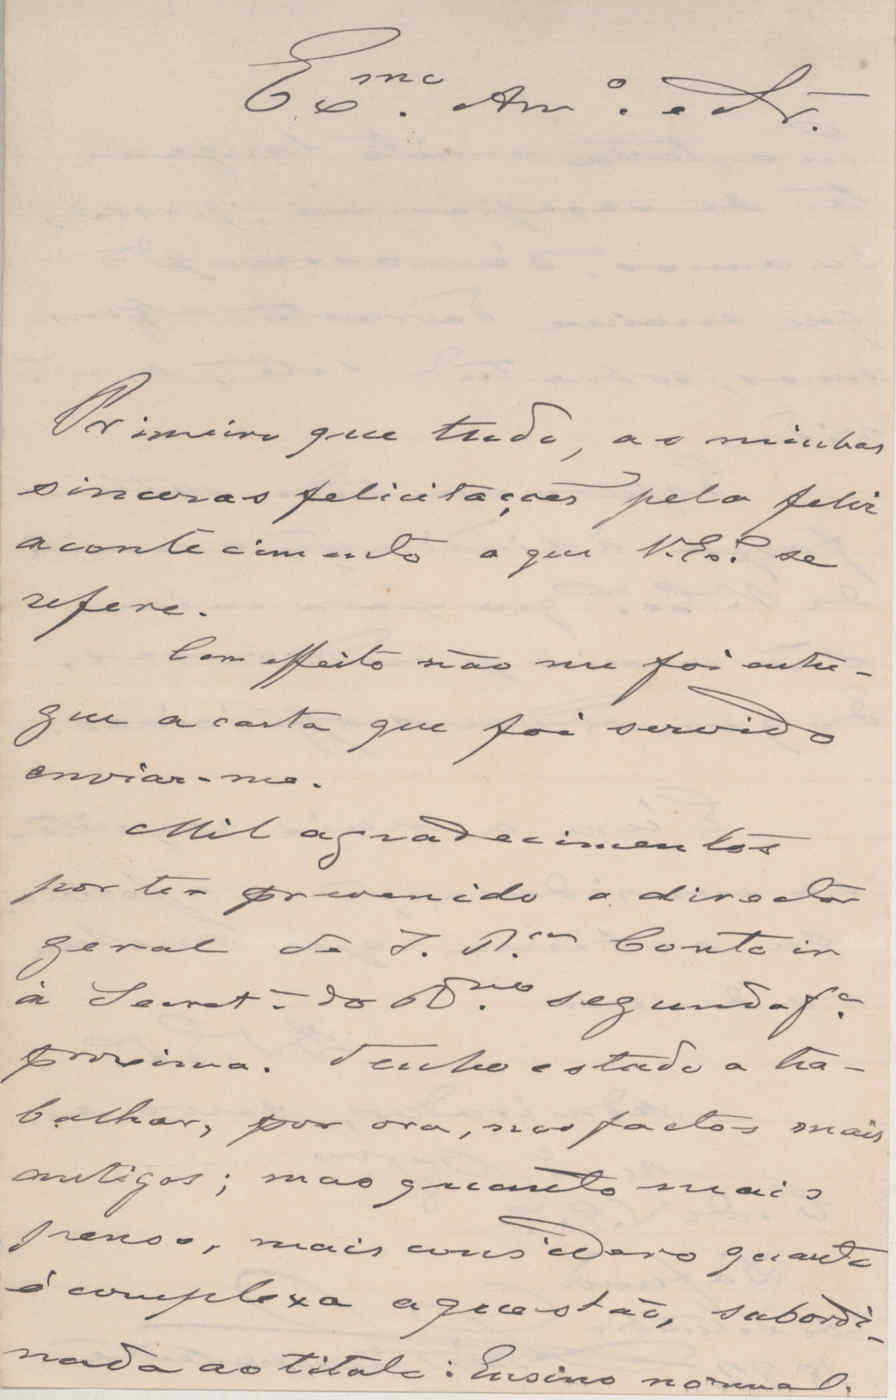 Ex.mo Am.o e Sr.
Primeiro que tudo, as minhas
sinceras felicitações pelo feliz
acontecimento a que V. Ex.a se
refere.
Com effeito não me foi entre-
gue a carta que foi servido
enviar-me.
Mil agradecimentos
por ter prevenido o director
geral de I. P.ca Conto ir
á Secret.a do R.no segunda f.a
proxima. Tenho estado a tra-
balhar, por ora, nos factos mais
antigos; mas quanto mais
penso, mais considero quanto
é complexa a questão, subordi-
nada ao titulo: Ensino normal.